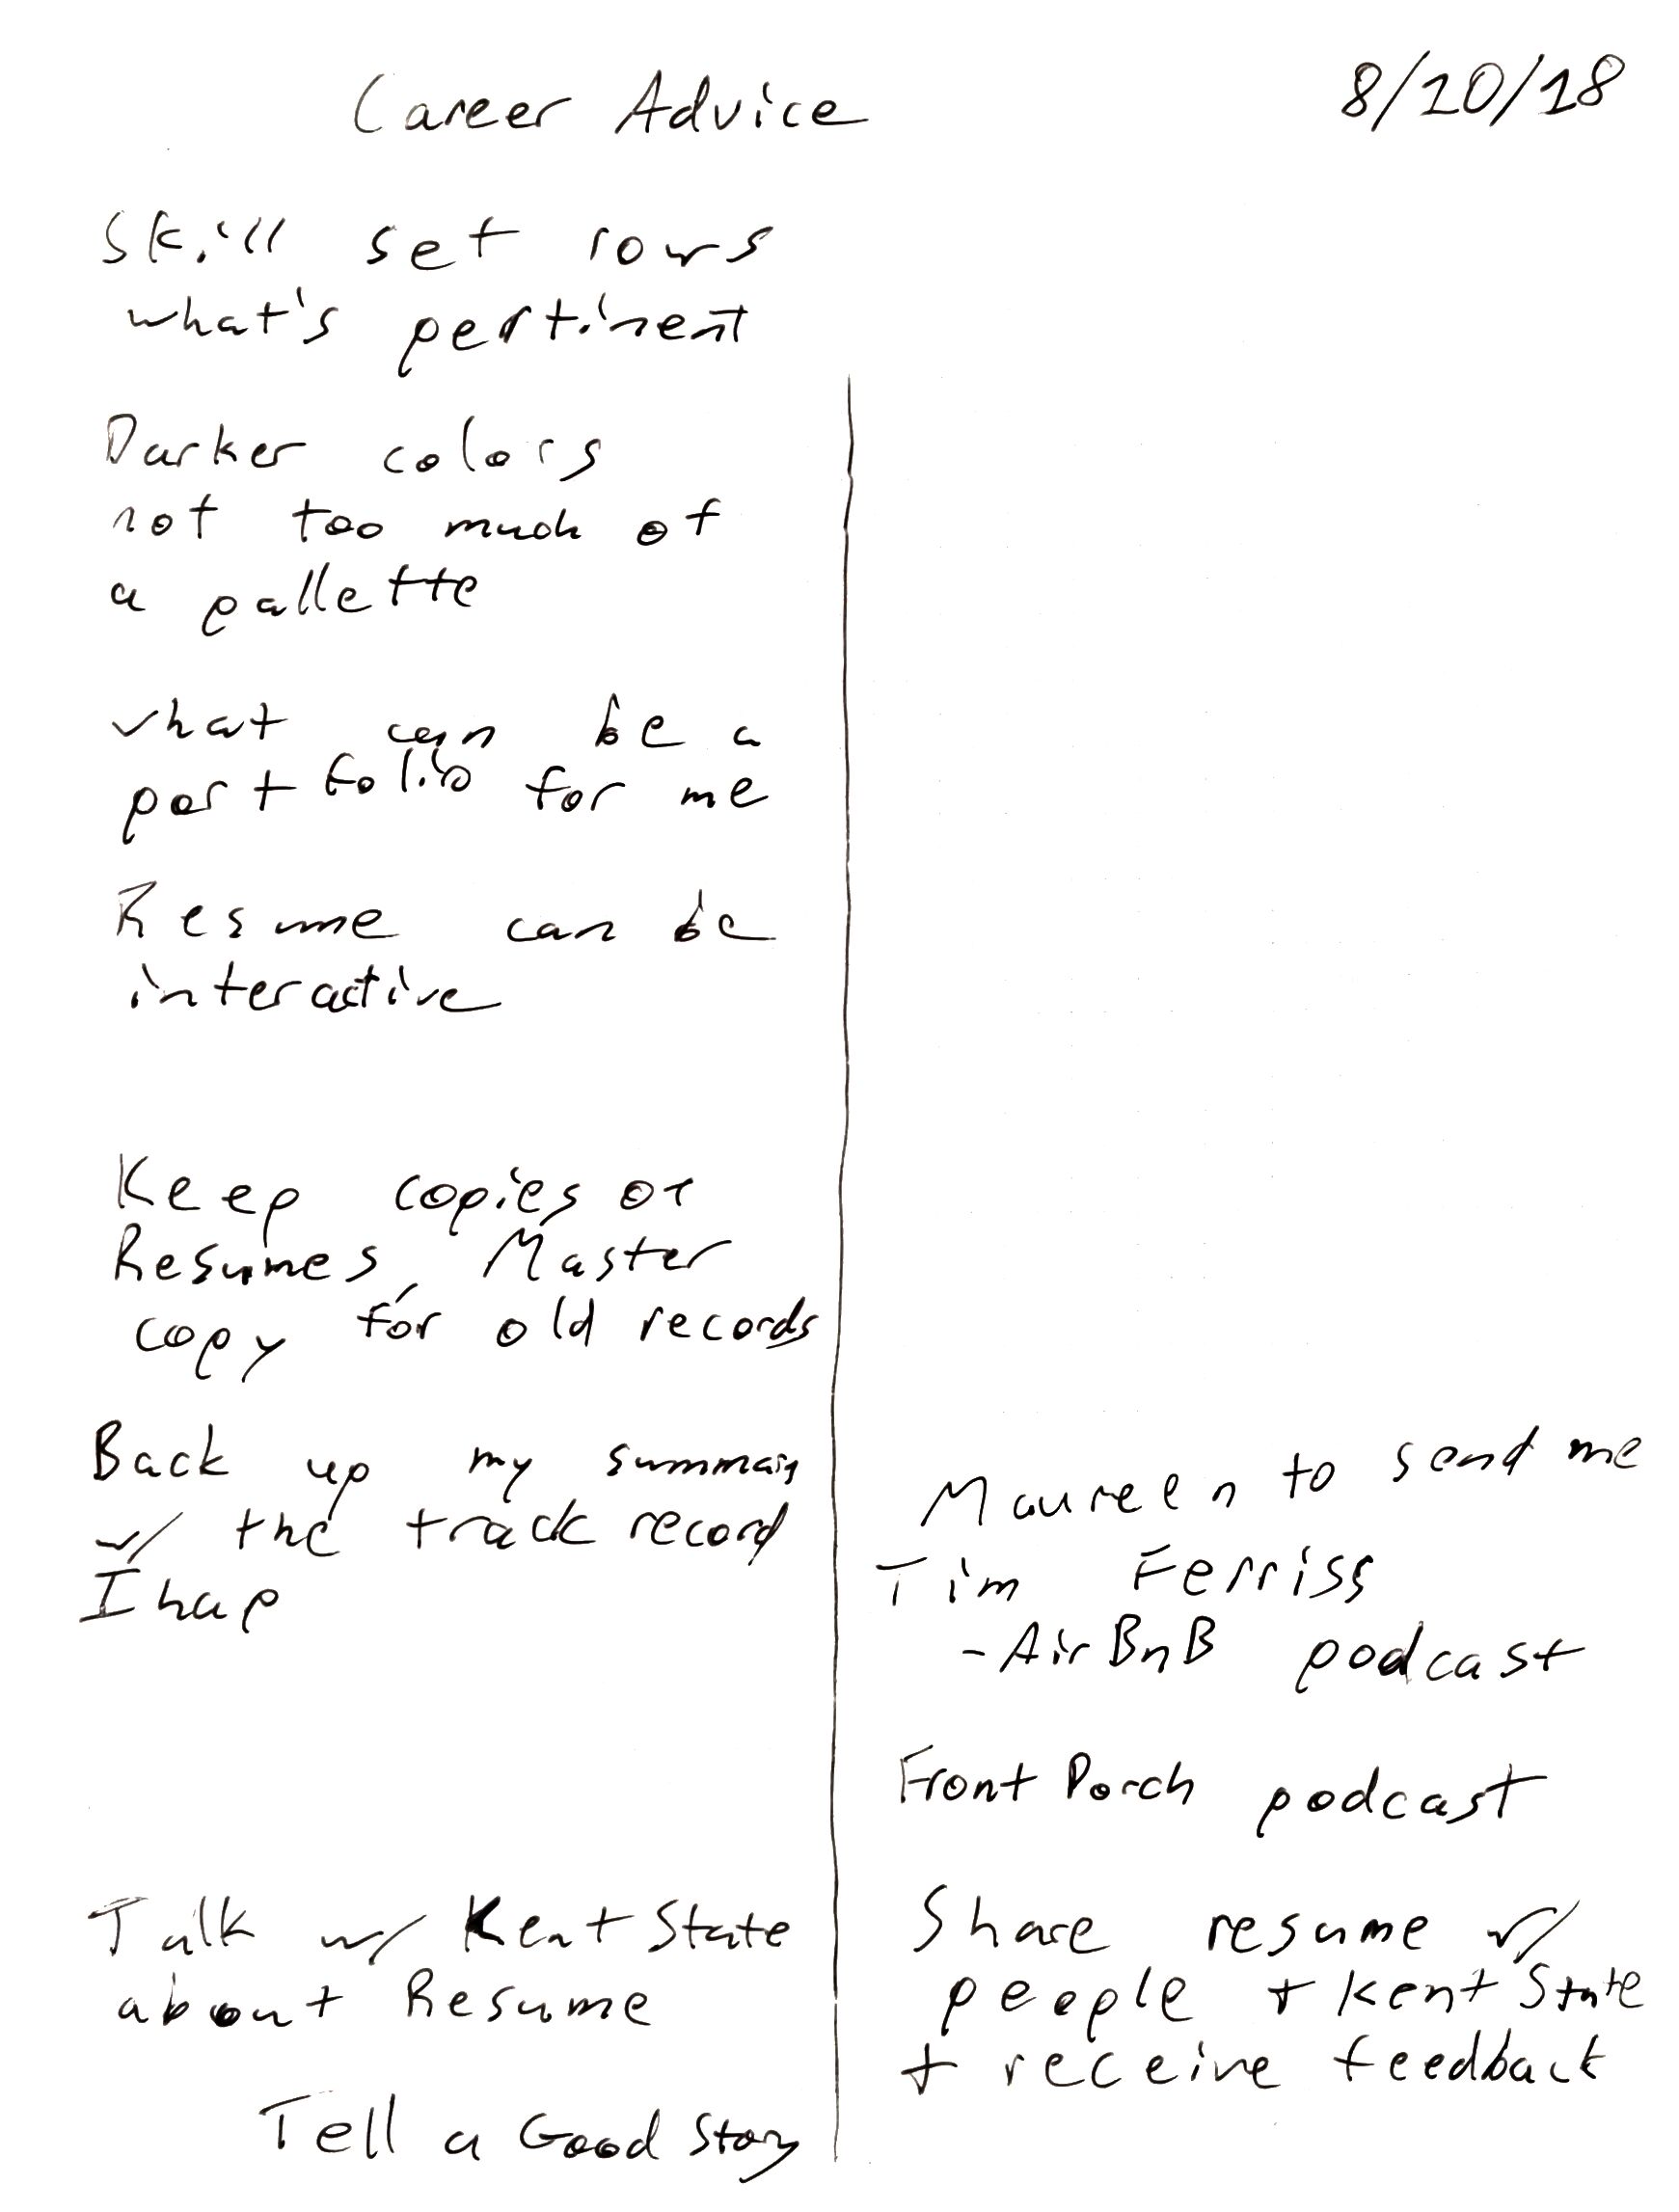 Career Advice
8/10/18
Skill set rows
what's pertinent
Darker colors
not too much of
a pallette
what can be a
portfolio for me
Resume can be
interactive
Keep copies of
Resumes, Master
copy for old records
Back up my summary
w/ the track record
I
Talk w/ Kent State
about Resume
Tell a Good Story
Maureen to send me
Tim Ferriss
- AirBnB podcast
Front Porch podcast
Share resume w/
people + Kent State
+ receive feedback